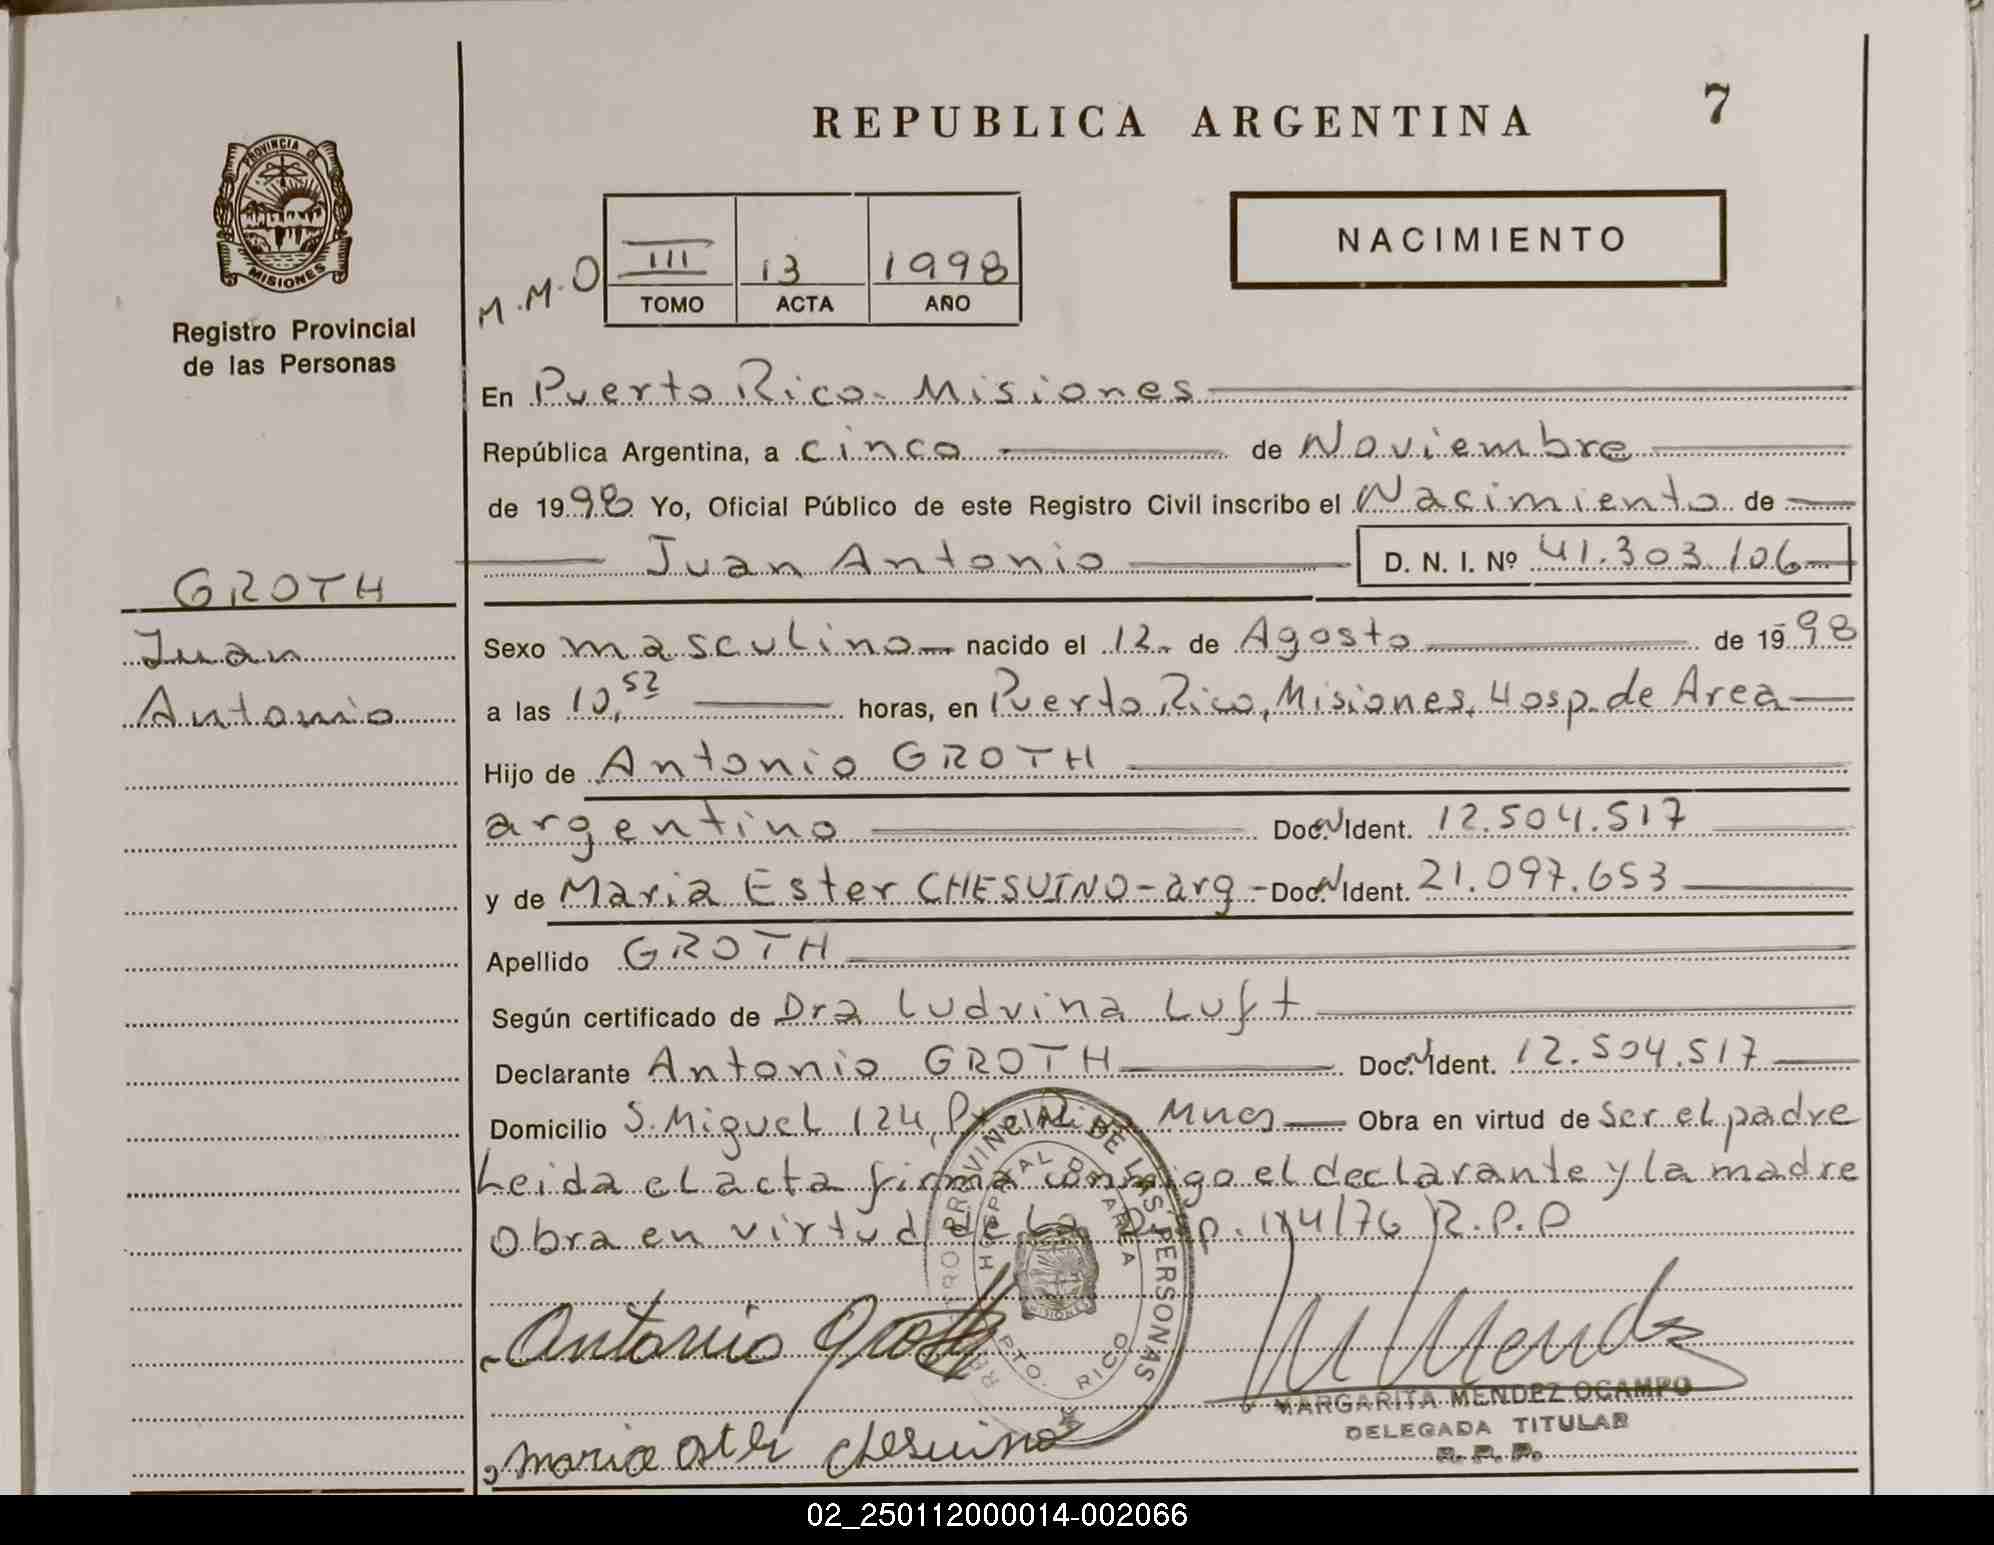 REPUBLICA ARGENTINA
7
PROVINCIA DE
MISIONES
Registro Provincial
de las Personas
M.M.O
III 13 1998
TOMO ACTA AÑO
NACIMIENTO
En Puerto Rico - Misiones
República Argentina, a cinco de Noviembre
de 1998 Yo, Oficial Público de este Registro Civil inscribo el Nacimiento de
Juan Antonio D. N. I. Nº 41.303.106
GROTH
Juan
Antonio
Sexo masculino nacido el 12 de Agosto de 1998
a las 10,52 horas, en Puerto Rico, Misiones, Hosp. de Area
Hijo de Antonio GROTH
argentino Doc. Ident. 12.504.517
y de Maria Ester CHESUINO - arg - Doc. Ident. 21.097.653
Apellido GROTH
Según certificado de Dra Ludvina Luft
Declarante Antonio GROTH Doc. Ident. 12.504.517
Domicilio S. Miguel 124, Mnes Obra en virtud de ser el padre
Leida el acta firma conmigo el declarante y la madre
Obra en virtud de la Disp. 114/76 R.P.P
REGISTRO PROVINCIAL DE LAS PERSONAS
HOSPITAL DE AREA
PTO. RICO
MISIONES
Antonio Groth
M Mendez
MARGARITA MENDEZ OCAMPO
DELEGADA TITULAR
R.P.P.
maria ester chesuino
02_250112000014-002066